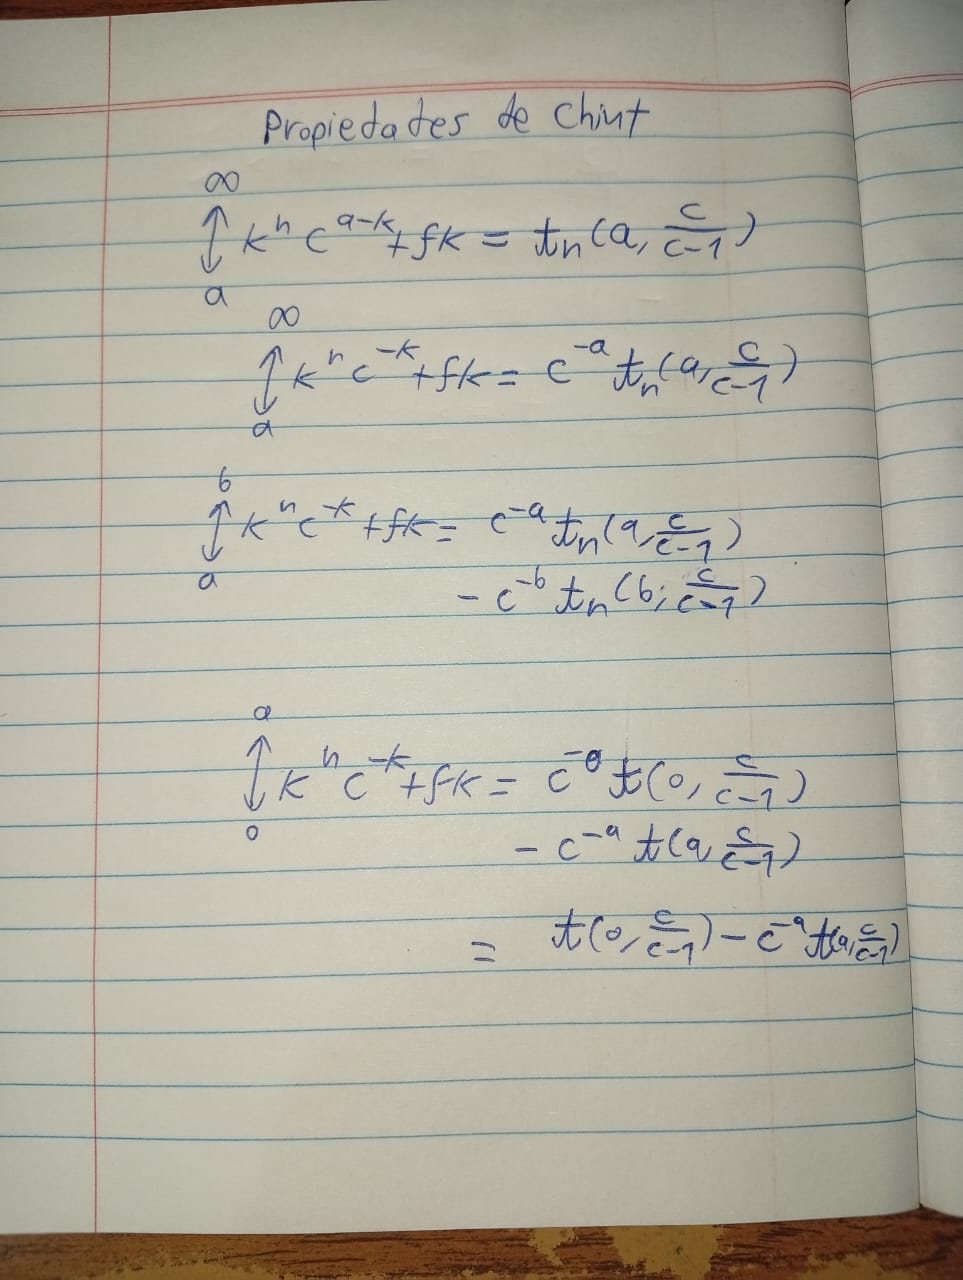 Propiedades de Chiut
∞
↕ kⁿ c^(a-k) +fk = tₙ(a, c/(c-1))
a
∞
↕ kⁿ c^(-k) +fk = c^(-a) tₙ(a, c/(c-1))
a
b
↕ kⁿ c^(-k) +fk = c^(-a) tₙ(a, c/(c-1))
a
- c^(-b) tₙ(b; c/(c-1))
a
↕ kⁿ c^(-k) +fk = c^(-0) t(0, c/(c-1))
0
- c^(-a) t(a, c/(c-1))
= t(0, c/(c-1)) - c^(-a) t(a, c/(c-1))